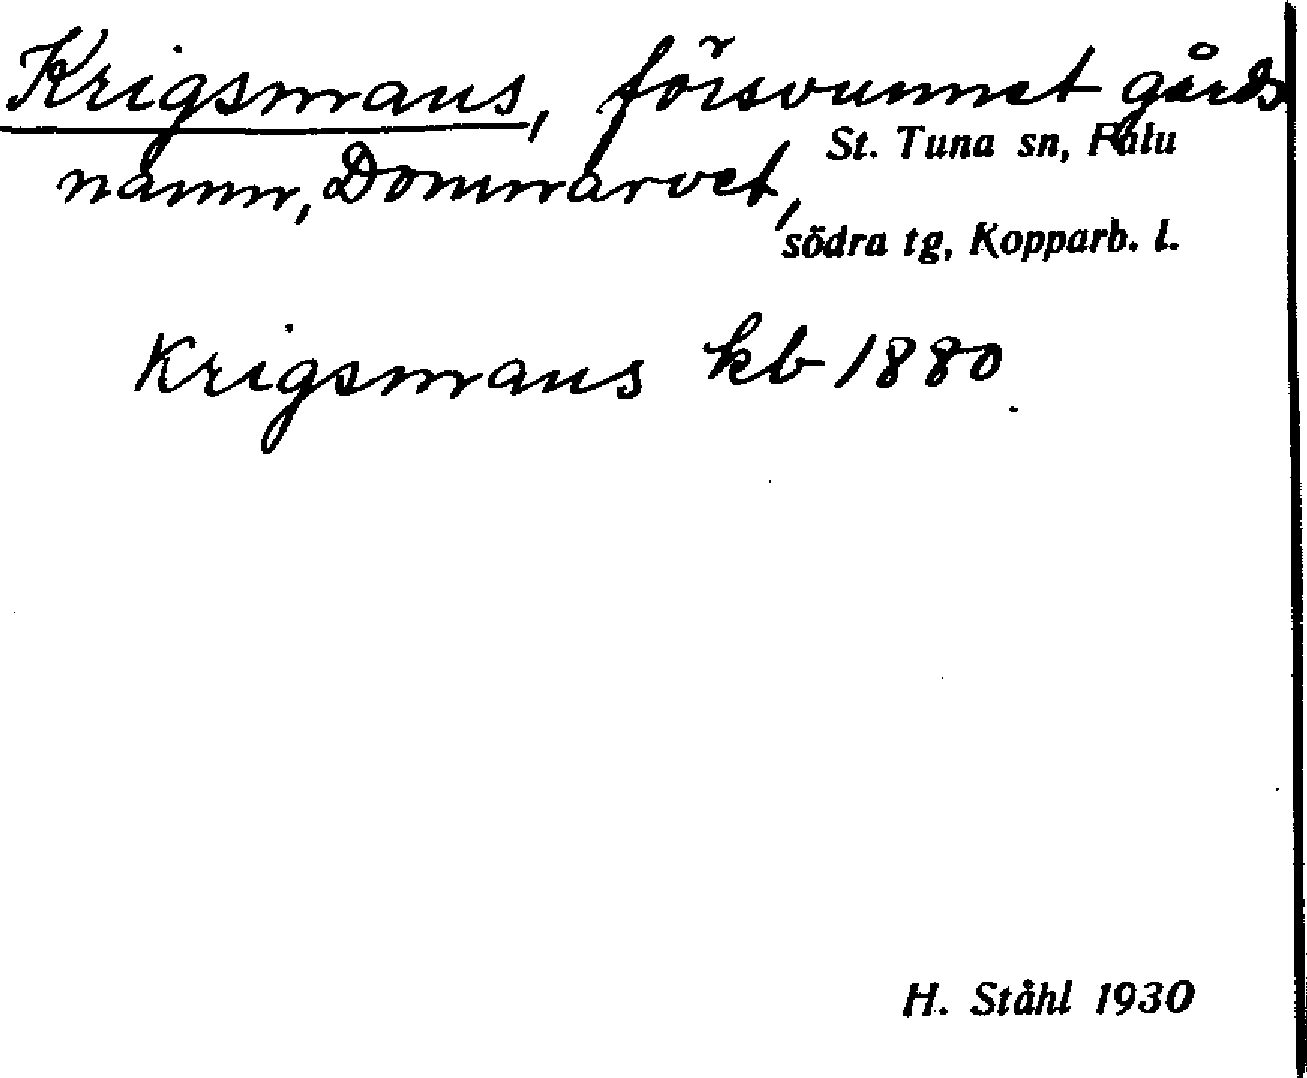 Krigsmans, försvunnet gårds
namn, Dommarvet,
St. Tuna sn, Falu
södra tg, Kopparb. l.
Krigsmans kb 1880.
H. Ståhl 1930